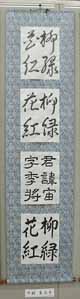 柳緑
花紅
柳緑
花紅
君諱宙
字季將
柳緑
花紅